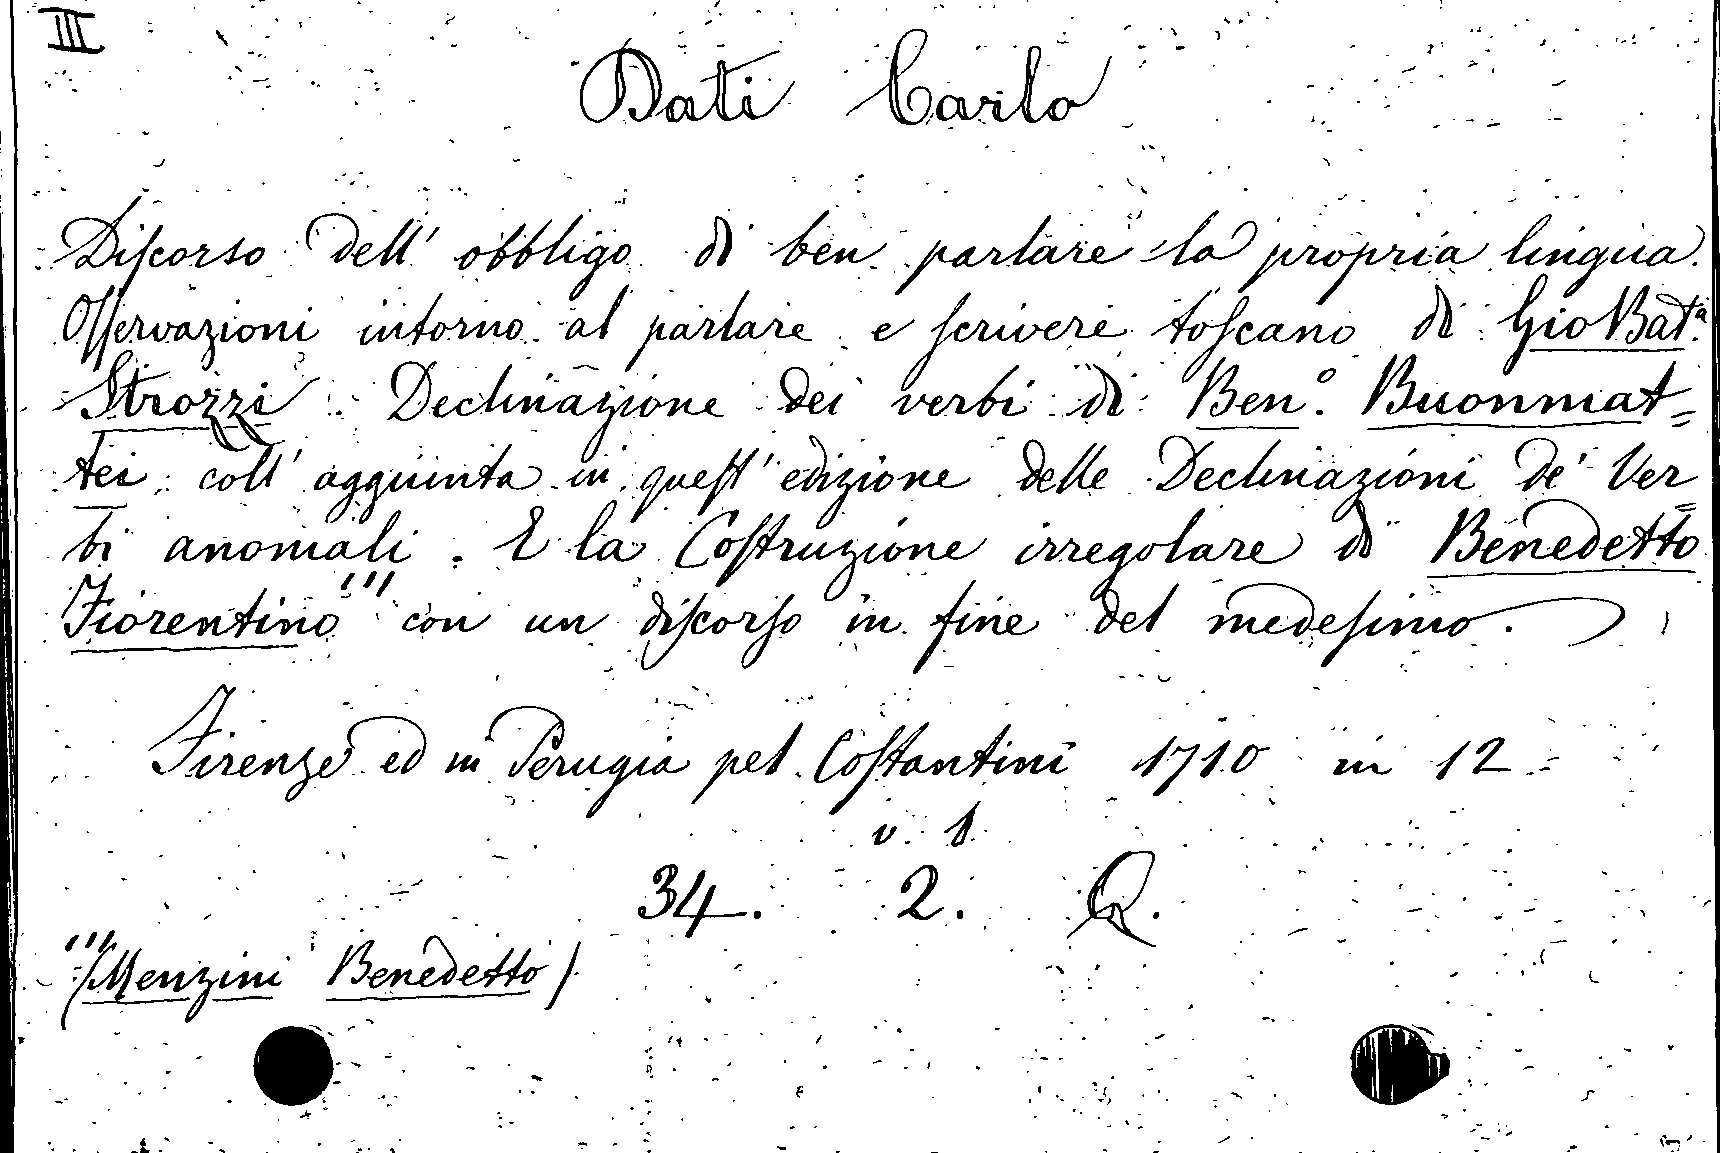 III
Dati Carlo
Discorso dell' obbligo di ben parlare la propria lingua.
Osservazioni intorno al parlare e scrivere toscano di Gio Batᵃ
Strozzi. Declinazione dei verbi di Ben.º Buonmat=
tei, coll' aggiunta in quest' edizione delle Declinazioni de' Ver=
bi anomali. E la Costruzione irregolare di Benedetto
Fiorentino''' con un discorso in fine del medesimo.
Firenze ed in Perugia pel Costantini 1710 in 12
v. 1.
34. 2. Q.
'''(Menzini Benedetto)